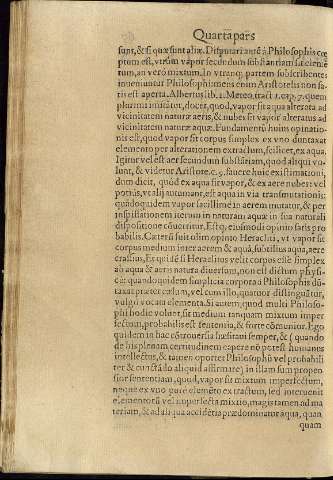 Quarta pars
sunt, & si quæ sunt aliæ. Disputari autē à Philosophis cœ
ptum est, vtrùm vapor secundùm substantiam sit elemē
tum, an verò mixtum. In vtranq; partem subscribentes
inueniuntur Philosophi: mens enim Aristotelis non sa
tis est aperta. Albertus lib. 1. Meteo. tract. 1. cap. 7. quem
plurimi imitātur, docet, quòd, vapor sit aqua alterata ad
vicinitatem naturæ aeris, & nubes sit vapor alteratus ad
vicinitatem naturæ aquæ. Fundamentū huius opinatio
nis est, quod vapor sit corpus simplex ex vno duntaxat
elemento per alterationem extractum, scilicet, ex aqua.
Igitur vel est aer secundùm substātiam, quod aliqui vo-
lunt, & videtur Aristote. c. 9. fauere huic existimationi,
dum dicit, quòd ex aqua fit vapor, & ex aere nubes: vel
potiùs, vt alij autumant, est aqua in via transmutationis:
quādoquidem vapor facillimè in aerem mutatur, & per
inspissationem iterum in naturam aquæ in sua naturali
dispositione cōuertitur. Estq; eiusmodi opinio satis pro
babilis. Cæterū fuit olim opinio Heracliti, vt vapor sit
corpus medium inter aerem & aquā, subtilius aqua, aere
crassius, Et quidē si Heraclitus velit corpus esse simplex
ab aqua & aeris natura diuersum, non est dictum physi-
cè: quandoquidem simplicia corpora à Philosophis dū-
taxat præter cælum, vel cum illo, quatuor distinguūtur,
vulgò vocata elementa. Si autem, quod multi Philoso-
phi hodie volunt, sit medium tanquam mixtum imper
fectum, probabilis est sententia, & fortè cōmunior. Ego
quidem in hac cōtrouersia hæsitaui semper, & (quando
de his plenam certitudinem capere nō potest humanus
intellectus, & tamen oportet Philosophū vel probabili
ter & cunctādo aliquid affirmare) in illam sum propen-
sior sententiam, quòd, vapor sit mixtum imperfectum,
neque ex vno purè elemēto extractum, sed interuenit
elementorū vel imperfecta mixtio, magis tamen ad ma
teriam, & ad aliqua accidētia prædominatur aqua, quàm
quam